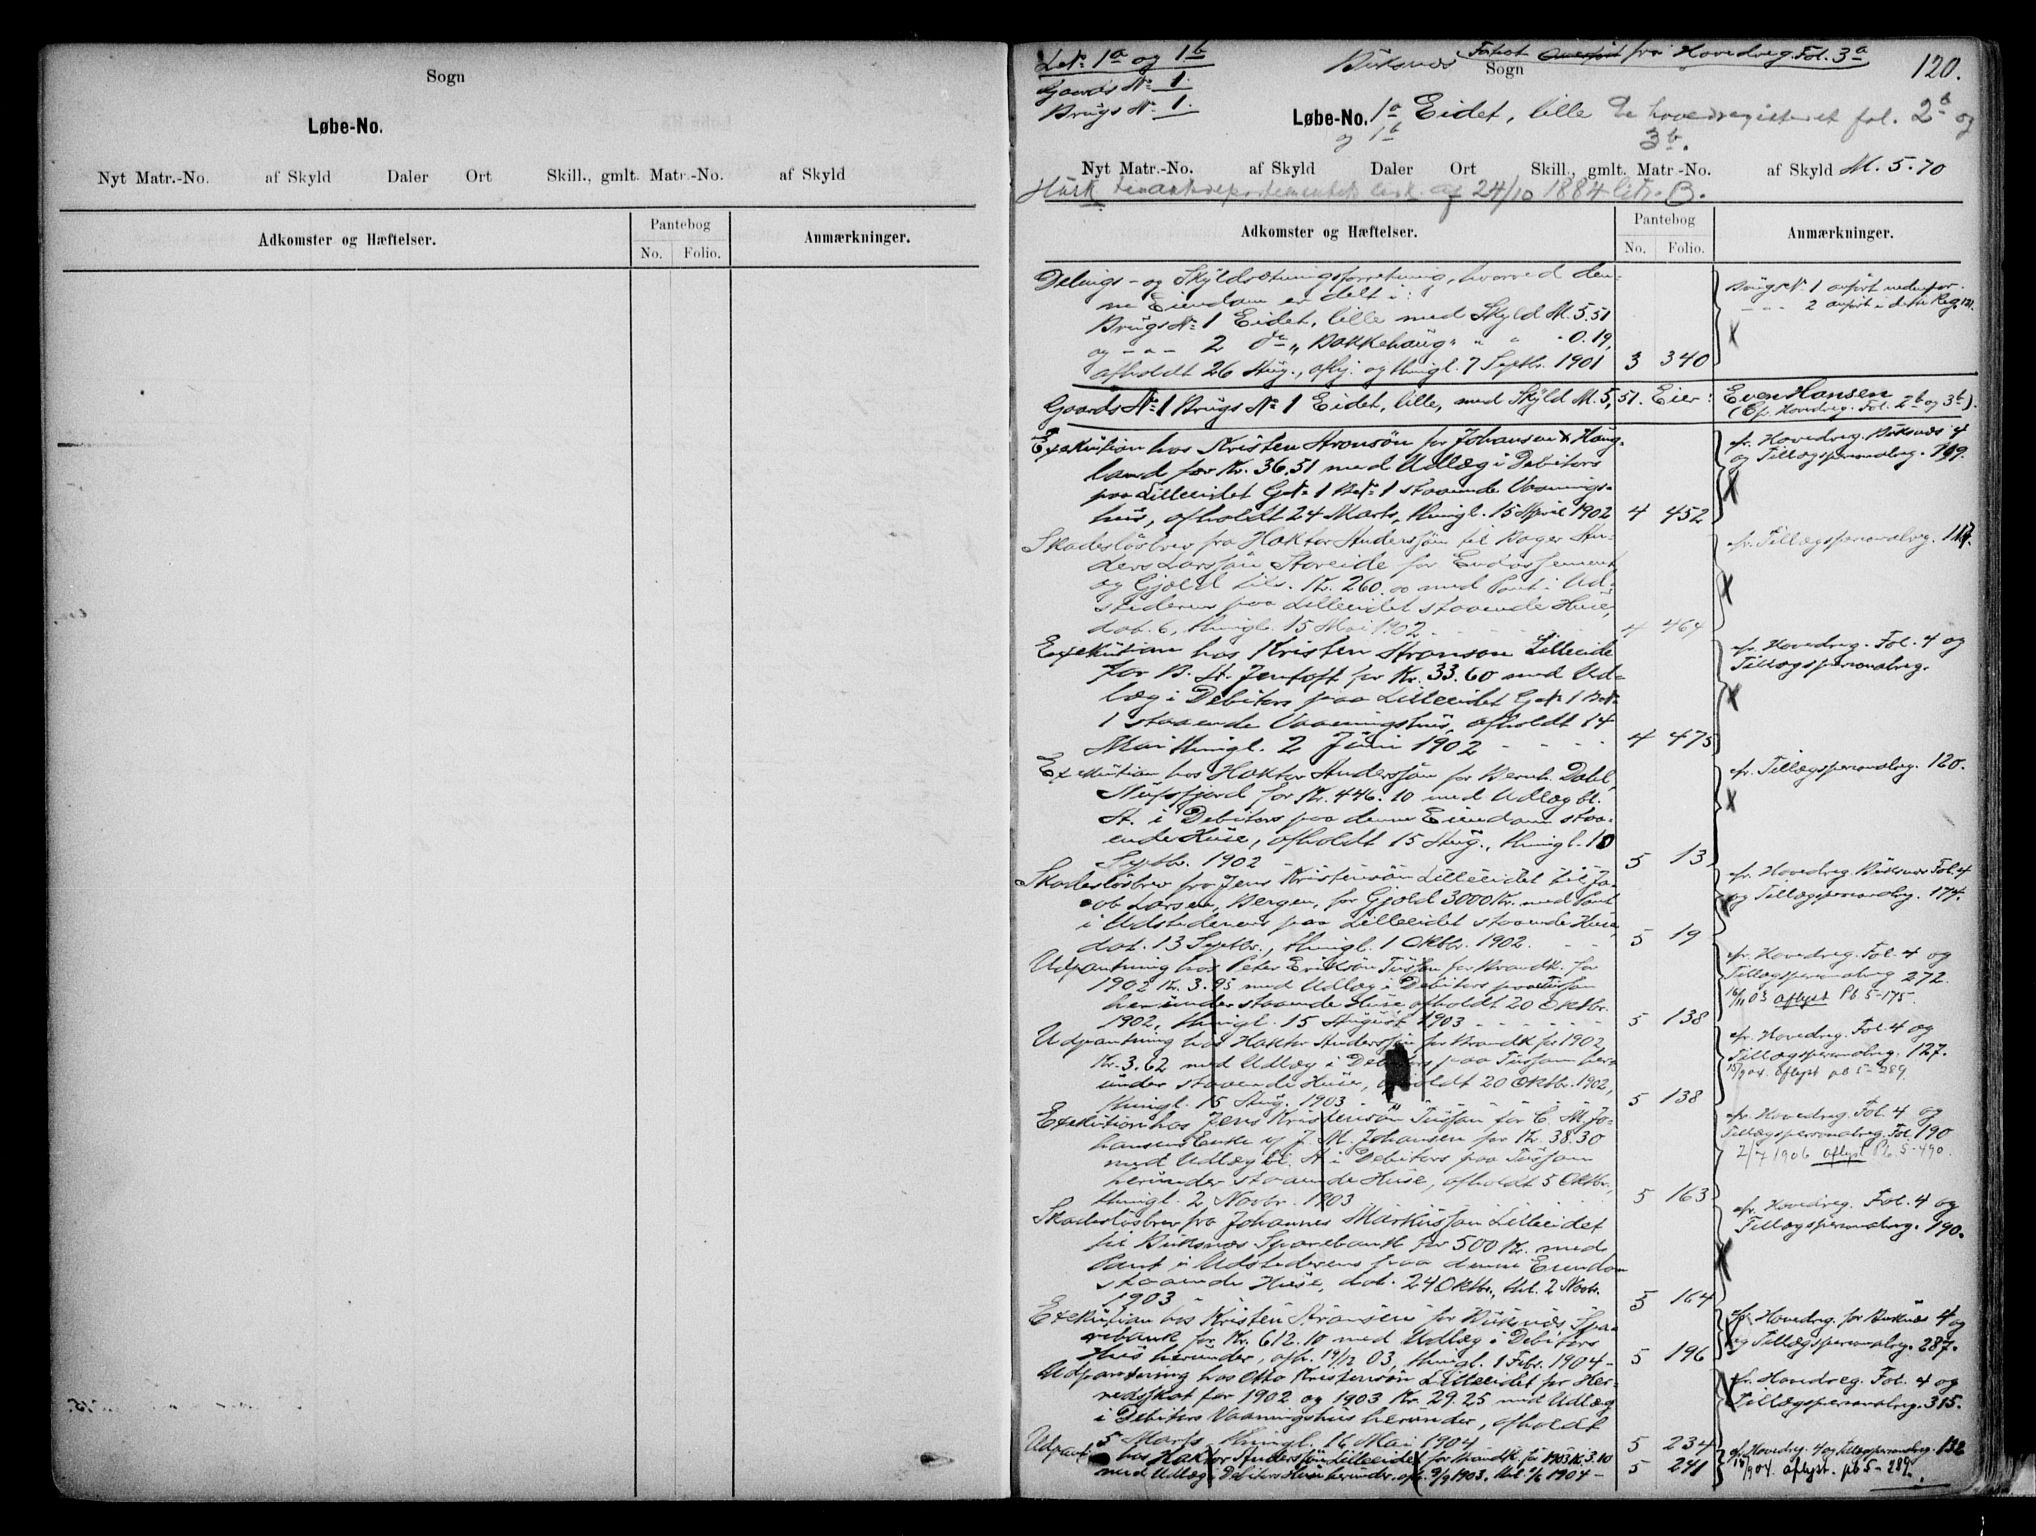 Sogn
Løbe-No.
Nyt Matr.-No. af Skyld Daler Ort Skill., gmlt. Matr.-No. af Skyld
Adkomster og Hæftelser.
Pantebog
No. Folio.
Anmærkninger.
L.№ 1a og 1b
Gaards № 1.
Brugs № 1.
Buksnæs Sogn
Fortsat fra Hovedreg. Fol. 3a
120.
Løbe-No. 1a Eidet, lille Se hovedregisteret fol. 2b og
og 1b 3b.
Nyt Matr.-No. af Skyld Daler Ort Skill., gmlt. Matr.-No. af Skyld M. 5.70
Husk Finantsdepartementets af 24/10 1884 litr. B.
Adkomster og Hæftelser.
Pantebog
No. Folio.
Anmærkninger.
Delings- og Skyldsætningsforretning, hvorved den-
ne Eiendom er delt i:
Brugs № 1 Eidet, lille med Skyld M. 5.51
og - " - 2 do " Bakkehaug " " " 0.19,
afholdt 26 Aug., afhj. og thingl. 7 Septbr. 1901 3 340
Brugs № 1 anført nedenfor.
- " - 2 anført i dette Reg. 121.
Gaards № 1 Brugs № 1 Eidet, lille, med Skyld M. 5,51. Eier: Even Hansen
(Cf. Hovedreg. Fol. 2b og 3b).
Exekution hos Kristen Aronsøn for Johansen & Haug-
land for Kr. 36.51 med Udlæg i Debitors
paa Lilleeidet G.№ 1 B.№ 1 staaende Vaanings-
hus, afholdt 24 Marts, thingl. 15 April 1902 4 452
cfr. Hovedreg. Buksnæs 4
og Tillægspersonalreg. 199.
Skadesløsbrev fra Haktor Anderssøn til Roger An-
ders Larssøn Storeide for Endossement
og Gjæld til. Kr. 260.00 med Pant i Ud-
stederens paa Lilleeidet staaende Huse,
dat. 6, thingl. 15 Mai 1902 4 464
cfr. Tillægspersonalreg. 117.
Exekution hos Kristen Aronson Lilleeide
for B. A. Jentoft for Kr. 33.60 med Ud-
læg i Debitors paa Lilleeidet G.№ 1 B.№
1 staaende Vaaningshus, afholdt 14
Mai thingl. 2 Juni 1902 4 475
cfr. Hovedreg. Fol. 4 og
Tillægspersonalreg.
Exekution hos Haktor Anderssøn for Bernh. Dahl,
Nufsfjord for Kr. 446.10 med Udlæg bl.
A. i Debitors paa denne Eiendom staa-
ende Huse, afholdt 15 Aug., thingl. 10
Septbr. 1902 5 13
cfr. Tillægspersonalreg. 120.
Skadesløsbrev fra Jens Kristensøn Lilleeidet til Ja-
cob Larsen, Bergen, for Gjæld 3000 Kr. med Pant
i Udstederens paa Lilleeidet staaende Huse,
dat. 13 Septbr., thingl. 1 Oktbr. 1902. 5 19
cfr. Hovedreg. Buksnæs Fol. 4
og Tillægspersonalreg. 174.
Udpantning hos Peter Eriksøn Tussan for Brandk. for
1902 Kr. 3.95 med Udlæg i Debitors paa Tussan
herunder staaende Huse, afholdt 20 Oktbr.
1902, thingl. 15 August 1903 5 138
cfr. Hovedreg. Fol. 4 og
Tillægspersonalreg 272.
16/11 03 aflyst Pb. 5-175.
Udpantning hos Haktor Anderssøn for Brandk for 1902
Kr. 3.62 med Udlæg i Debitors paa Tussan her-
under staaende Huse, afholdt 20 Oktbr. 1902,
thingl. 15 Aug. 1903 5 138
cfr. Hovedreg. Fol. 4 og
Tillægspersonalreg. 127.
15/9 04. aflyst pb 5-289
Exekution hos Jens Kristensøn Tussan for C. M. Jo-
hansens Enke v/ J. M. Johansen for Kr. 38.30
med Udlæg bl. A. i Debitors paa Tussan
herunder staaende Huse, afholdt 5 Oktbr.,
thingl. 2 Novbr. 1903 5 163
cfr. Hovedreg. Fol. 4 og
Tillægspersonalreg. Fol 190
2/7 1906 aflyst Pb. 5-490.
Skadesløsbrev fra Johannes Markussøn Lilleeidet
til Buksnæs Sparebank for 500 Kr. med
Pant i Udstederens paa denne Eiendom
staaende Huse, dat. 24 Oktbr., thl. 2 Novbr.
1903 5 164
cfr. Hovedreg. Fol. 4 og
Tillægspersonalreg. 190.
Exekution hos Kristen Aronsen for Buksnæs Spa-
rebank for Kr. 612.10 med Udlæg i Debitors
Hus herunder, afh. 14/12 03, thingl. 1 Febr. 1904 - 5 196
cfr. Hovedreg. for Buksnæs 4
og Tillægspersonalreg. 287.
Udpantning hos Otto Kristensøn Lilleeidet for Her-
redsskat for 1902 og 1903 Kr. 29.25 med Udlæg
i Debitors Vaaningshus herunder, afholdt
5 Marts, thingl. 16 Mai 1904 5 234
cfr. Hovedreg. Fol. 4 og
Tillægspersonalreg. 315.
Udpantn. hos Haktor Anderssøn Lilleeidet for Brandk for 1903 Kr. 3.10
med Udlæg i Debitors Hus herunder, afh. 9/9 1903, thl. 1/6 1904 - 5 241
cfr. Hovedreg. 4 og Tillægspersonalreg. 132
15/9 04. aflyst. pb 5-289.